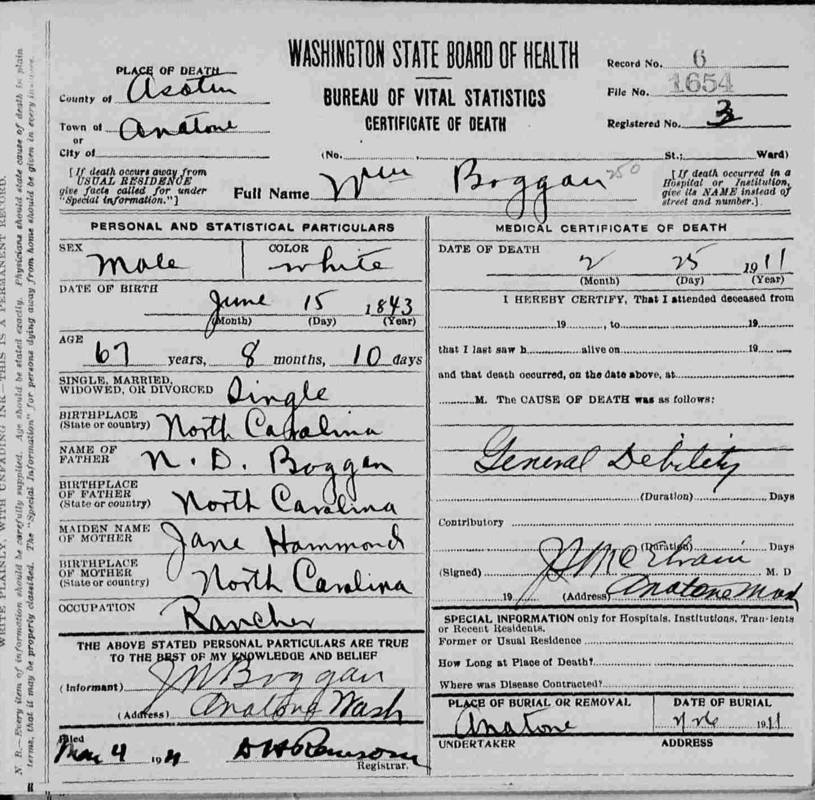 WASHINGTON STATE BOARD OF HEALTH
BUREAU OF VITAL STATISTICS
CERTIFICATE OF DEATH
Record No. 6
File No. 1654
Registered No. 3
PLACE OF DEATH
County of Asotin
Town of Anatone
or
City of
(No. , St.; Ward)
[If death occurs away from
USUAL RESIDENCE
give facts called for under
"Special information."]
Full Name Wm Boggan 250
[If death occurred in a
Hospital or Institution,
give its NAME instead of
street and number.]
PERSONAL AND STATISTICAL PARTICULARS
SEX Male
COLOR white
DATE OF BIRTH
June 15 1843
(Month) (Day) (Year)
AGE
67 years, 8 months, 10 days
SINGLE, MARRIED,
WIDOWED, OR DIVORCED Single
BIRTHPLACE
(State or country) North Carolina
NAME OF
FATHER N. D. Boggan
BIRTHPLACE
OF FATHER
(State or country) North Carolina
MAIDEN NAME
OF MOTHER Jane Hammond
BIRTHPLACE
OF MOTHER
(State or country) North Carolina
OCCUPATION Rancher
THE ABOVE STATED PERSONAL PARTICULARS ARE TRUE
TO THE BEST OF MY KNOWLEDGE AND BELIEF
(Informant) J W Boggan
(Address) Anatone Wash
Filed
Mar 4 19
Registrar.
MEDICAL CERTIFICATE OF DEATH
DATE OF DEATH
2 25 1911
(Month) (Day) (Year)
I HEREBY CERTIFY, That I attended deceased from
19 , to 19
that I last saw h alive on 19
and that death occurred, on the date above, at
M. The CAUSE OF DEATH was as follows:
General Debility
(Duration) Days
Contributory
(Duration) Days
(Signed) M. D
19 (Address) Anatone Wash
SPECIAL INFORMATION only for Hospitals, Institutions, Transients
or Recent Residents.
Former or Usual Residence
How Long at Place of Death?
Where was Disease Contracted?
PLACE OF BURIAL OR REMOVAL
Anatone
DATE OF BURIAL
2/26 1911
UNDERTAKER
ADDRESS
WRITE PLAINLY, WITH UNFADING INK—THIS IS A PERMANENT RECORD.
N. B.—Every item of information should be carefully supplied. Age should be stated exactly. Physicians should state cause of death in plain
terms, that it may be properly classified. The "Special Information" for persons dying away from home should be given in every instance.